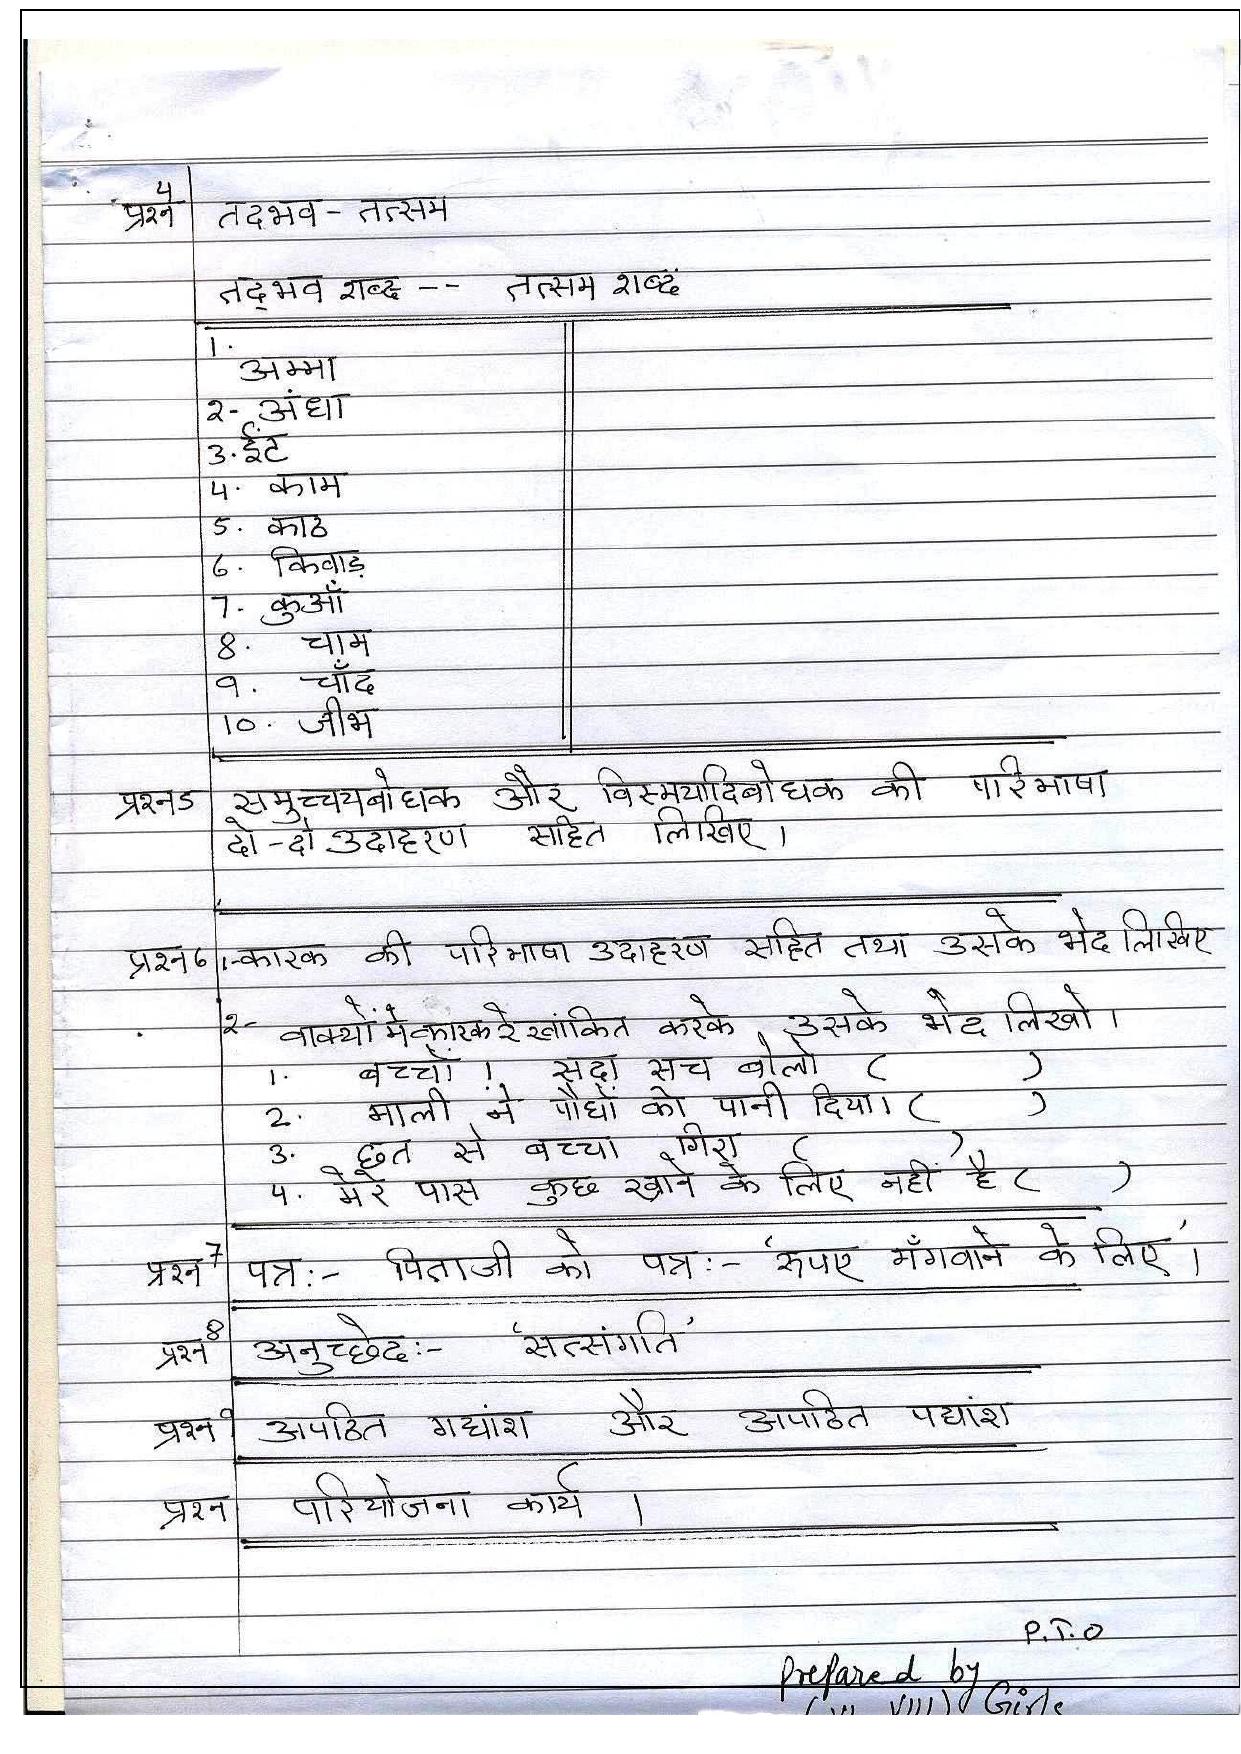 प्रश्न 4 तदभव - तत्सम
तद्भव शब्द -- तत्सम शब्द
1.
अम्मा
2- अंधा
3. ईंट
4. काम
5. काठ
6. किवाड़
7. कुआँ
8. चाम
9. चाँद
10. जीभ
प्रश्न 5 समुच्चयबोधक और विस्मयादिबोधक की परिभाषा
दो-दो उदाहरण सहित लिखिए।
प्रश्न 6 1- कारक की परिभाषा उदाहरण सहित तथा उसके भेद लिखिए
2- वाक्यों में कारक रेखांकित करके उसके भेद लिखो।
1. बच्चों! सदा सच बोलो ( )
2. माली ने पौधों को पानी दिया। ( )
3. छत से बच्चा गिरा ( )
4. मेरे पास कुछ खाने के लिए नहीं है ( )
प्रश्न 7 पत्र:- पिताजी को पत्र:- 'रूपए मँगवाने के लिए'।
प्रश्न 8 अनुच्छेद:- 'सत्संगति'
प्रश्न 9 अपठित गद्यांश और अपठित पद्यांश
प्रश्न परियोजना कार्य।
P.T.O
Prepared by
VIII) Girls